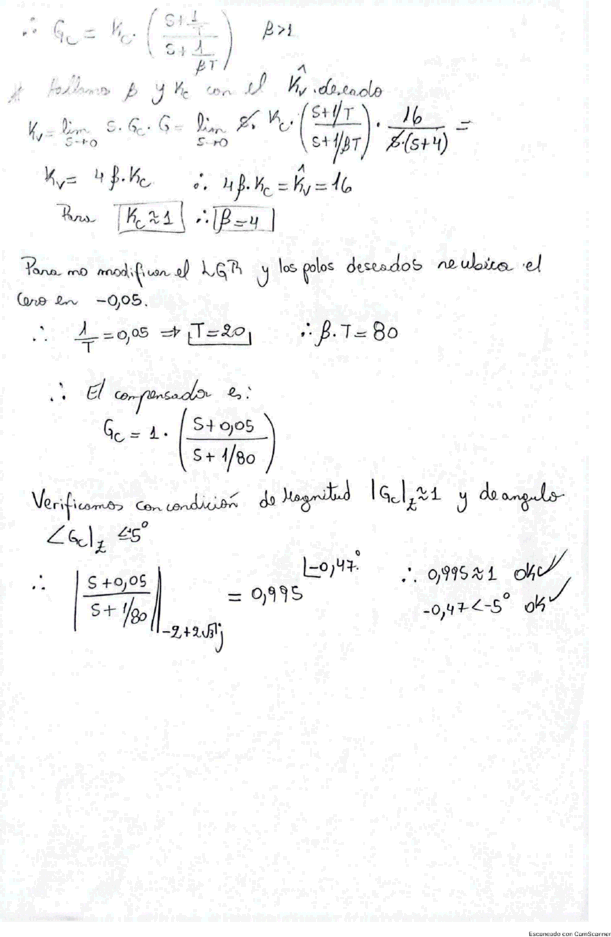 ∴ Gc = Kc · (S+1/T / S+1/βT) β>1
* Hallamos β y Kc con el K̂v deseado
Kv = lim S→0 S·Gc·G = lim S→0 S· Kc · (S+1/T / S+1/βT) · 16 / S·(S+4) =
Kv = 4β·Kc ∴ 4β·Kc = K̂v = 16
Para Kc ≈ 1 ∴ β=4
Para no modificar el LGR y los polos deseados se ubica el
cero en -0,05.
∴ 1/T = 0,05 ⇒ T=20 ∴ β·T = 80
∴ El compensador es:
Gc = 1 · (S+0,05 / S+1/80)
Verificamos con condición de Magnitud |Gc|z ≈ 1 y de angulo
∠Gc|z ≤-5°
∴ |S+0,05 / S+1/80| -2+2√3j = 0,995 ∠-0,47° ∴ 0,995 ≈ 1 OK✓
-0,47 < -5° OK✓
Escaneado con CamScanner